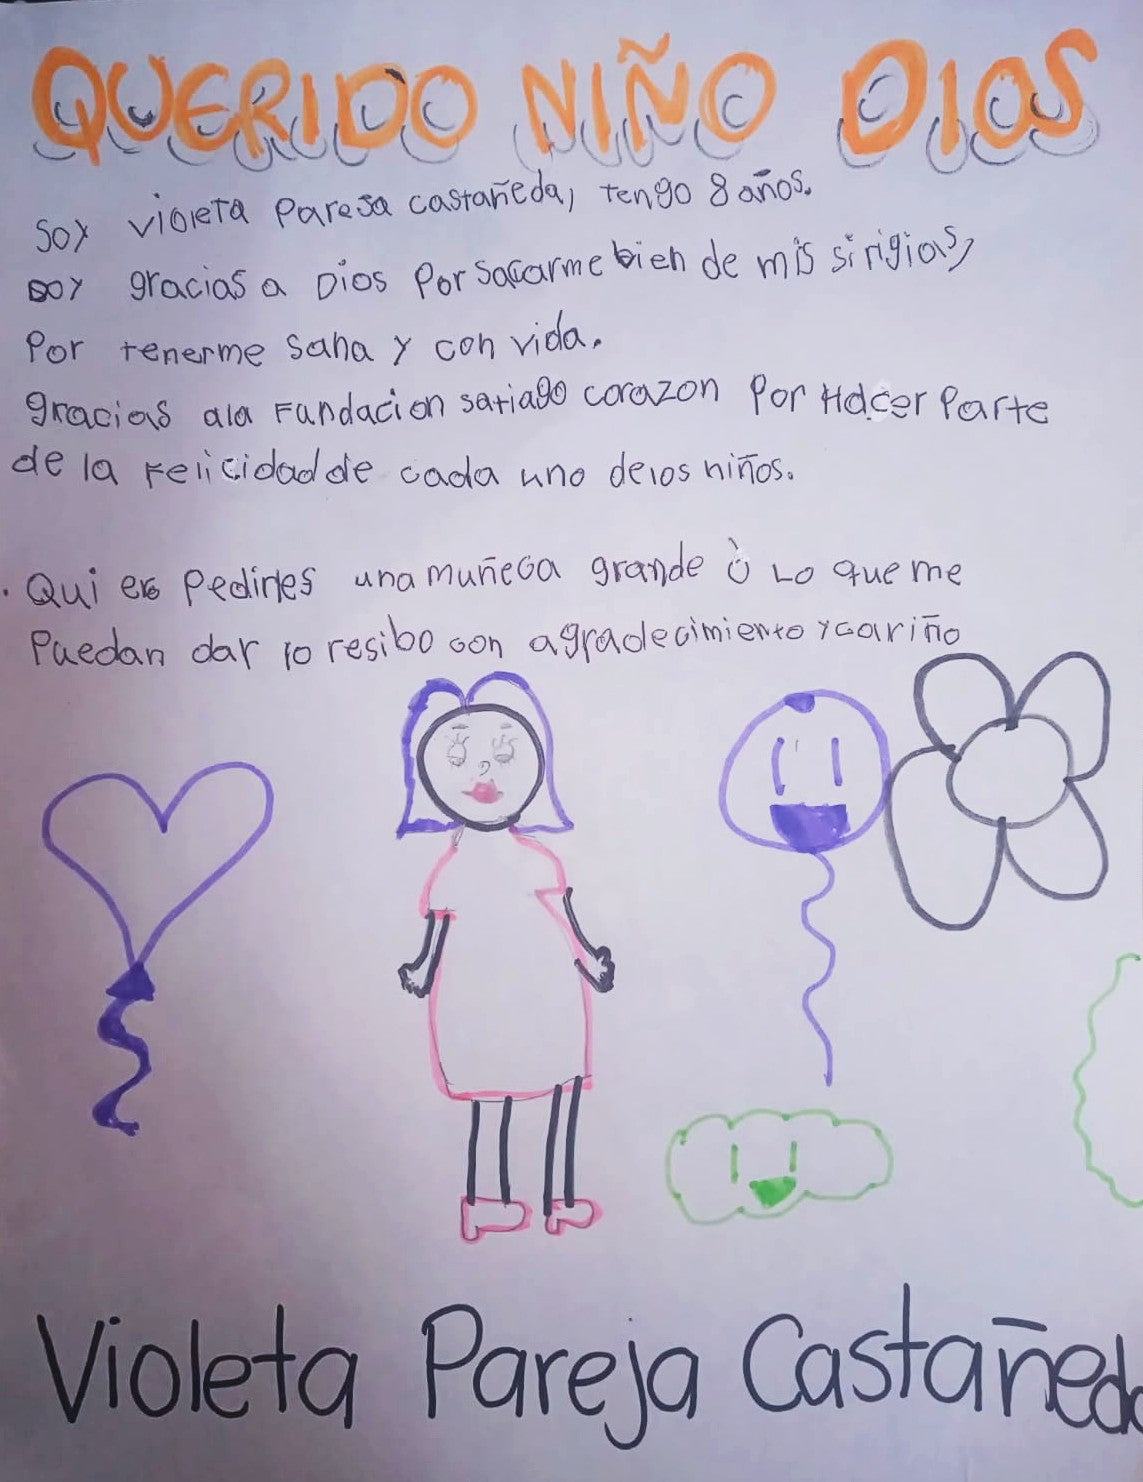 QUERIDO NIÑO DIOS
Soy violeta Pareja castañeda, tengo 8 años.
DOY gracias a Dios Por sacarme bien de mis sirigias,
Por tenerme sana y con vida.
gracias ala Fundacion satiago corazon Por Hacer Parte
de la Felicidad de cada uno delos niños.
. Quiero Pedirles una muñeca grande ò Lo que me
Puedan dar lo resibo con agradecimiento y cariño
Violeta Pareja Castañeda